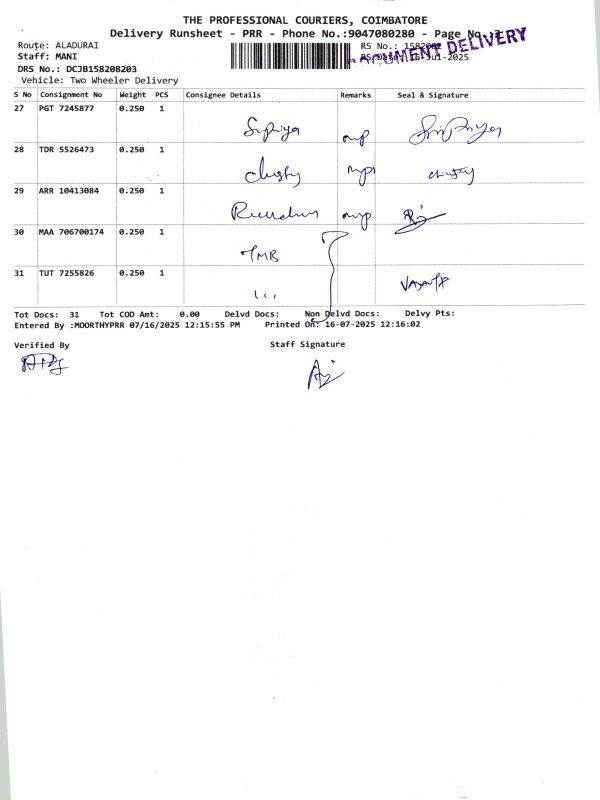 THE PROFESSIONAL COURIERS, COIMBATORE
Delivery Runsheet - PRR - Phone No.:9047080280 - Page No.:
Route: ALADURAI
RS No.:
Staff: MANI
-Jul-2025
DELIVERY
DRS No.: DCJB158208203
Vehicle: Two Wheeler Delivery
S No Consignment No Weight PCS Consignee Details Remarks Seal & Signature
27 PGT 7245877 0.250 1
Supriya
28 TDR 5526473 0.250 1
29 ARR 10413084 0.250 1
30 MAA 706700174 0.250 1
TMB
31 TUT 7255826 0.250 1
Tot Docs: 31 Tot COD Amt: 0.00 Delvd Docs: Non Delvd Docs: Delvy Pts:
Entered By :MOORTHYPRR 07/16/2025 12:15:55 PM Printed On: 16-07-2025 12:16:02
Verified By Staff Signature